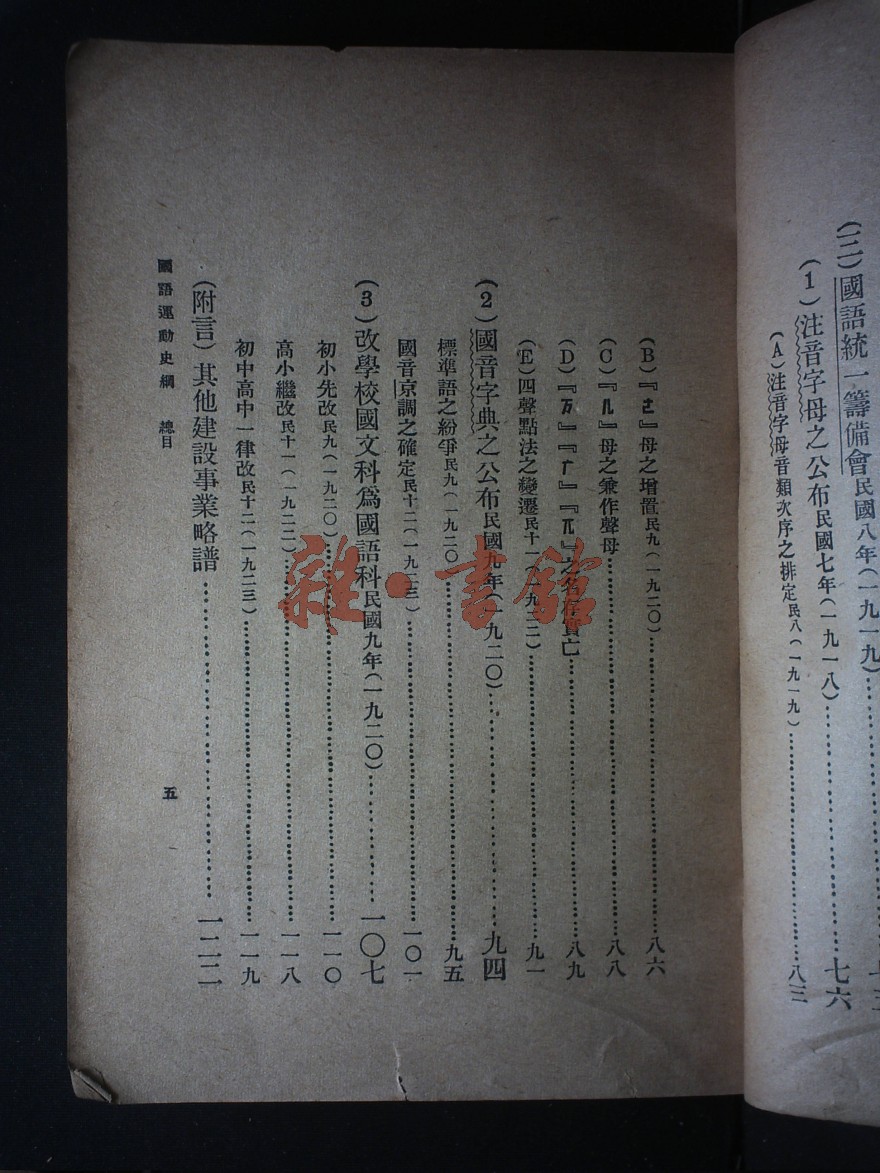 (二)國語統一籌備會民國八年(一九一九)……
(1)注音字母之公布民國七年(一九一八)……七六
(A)注音字母音類次序之排定民八(一九一九)……八三
(B)『ㄜ』母之增置民九(一九二〇)……八六
(C)『ㄦ』母之兼作聲母……八八
(D)『ㄪ』『ㄬ』『ㄫ』之名存實亡……八九
(E)四聲點法之變遷民十一(一九二二)……九一
(2)國音字典之公布民國九年(一九二〇)……九四
標準語之紛爭民九(一九二〇)……九五
國音京調之確定民十二(一九二三)……一〇一
(3)改學校國文科爲國語科民國九年(一九二〇)……一〇七
初小先改民九(一九二〇)……一一〇
高小繼改民十一(一九二二)……一一八
初中高中一律改民十二(一九二三)……一一九
(附言)其他建設事業略譜……一二二
國語運動史綱 總目 五
雜·書館